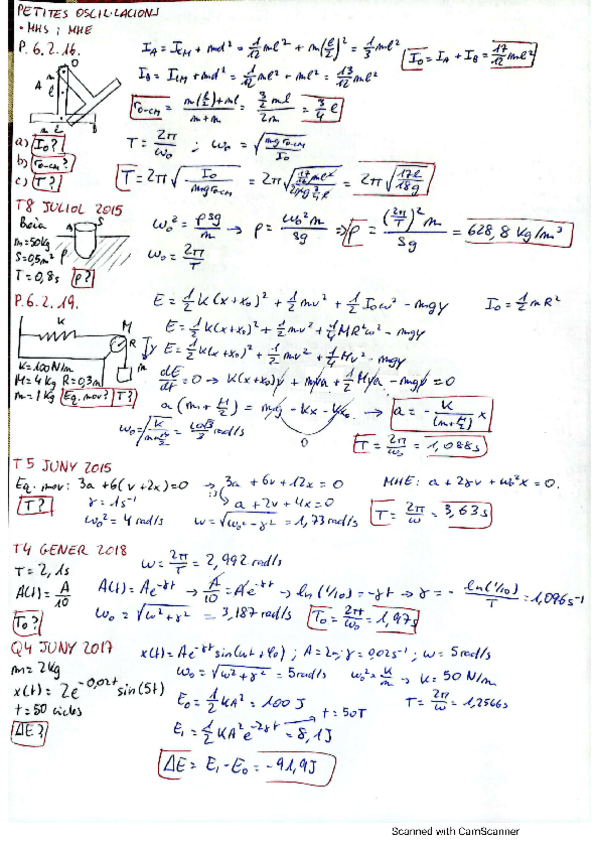 PETITES OSCIL·LACIONS
• MHS ; MHE
P. 6.2.16.
I_A = I_CM + md² = 1/12 ml² + m(l/2)² = 1/3 ml²
I_0 = I_A + I_B = 17/12 ml²
I_B = I_CM + md² = 1/12 ml² + ml² = 13/12 ml²
r_0-CM = (m(l/2) + ml)/(m+m) = (3/2 ml)/(2m) = 3/4 l
a) I_0?
b) r_0-CM?
c) T?
T = 2π/ω_0 ; ω_0 = √(m g r_0-CM / I_0)
T = 2π√(I_0/(m g r_0-CM)) = 2π√((17/12 ml²)/(2mg 3/4 l)) = 2π√(17l/18g)
T8 JULIOL 2015
Boia
m=50kg
S=0,5m²
T=0,8s ρ?
ω_0² = ρSg/m → ρ = ω_0² m/Sg ⇒ ρ = (2π/T)² m/Sg = 628,8 kg/m³
ω_0 = 2π/T
P. 6.2.19.
K=100N/m
M=4kg R=0,3m
m=1kg Eq. mov? T?
E = 1/2 K(x+x_0)² + 1/2 mv² + 1/2 I_0ω² - mgy I_0 = 1/2 mR²
E = 1/2 K(x+x_0)² + 1/2 mv² + 1/4 MR²ω² - mgy
E = 1/2 K(x+x_0)² + 1/2 mv² + 1/4 Mv² - mgy
dE/dt = 0 → K(x+x_0)v + mva + 1/2 Mva - mgv = 0
a(m + M/2) = mg - Kx - Kx_0 → a = - K/(m+M/2) x
0
T = 2π/ω_0 = 1,088s
T5 JUNY 2015
Eq. mov: 3a+6(v+2x)=0 → 3a + 6v + 12x = 0 MHE: a + 2γv + ω_0²x = 0.
a + 2v + 4x = 0
T? γ = 1s⁻¹
ω_0² = 4 rad/s ω = √(ω_0² - γ²) = 1,73 rad/s T = 2π/ω = 3,63s
T4 GENER 2018
T = 2,1s
A(t) = A/10
T_0?
ω = 2π/T = 2,992 rad/s
A(t) = Ae^-γt → A/10 = Ae^-γt → ln(1/10) = -γt → γ = - ln(1/10)/T = 1,096s⁻¹
ω_0 = √(ω² + γ²) = 3,187 rad/s T_0 = 2π/ω_0 = 1,97s
Q4 JUNY 2017
m = 2kg
x(t) = 2e^-0,02t sin(5t)
t = 50 cicles
ΔE?
x(t) = Ae^-γt sin(ωt + φ_0) ; A = 2m; γ = 0,02s⁻¹ ; ω = 5 rad/s
ω_0 = √(ω² + γ²) = 5 rad/s ω_0² = K/m → K = 50 N/m
E_0 = 1/2 KA² = 100 J T = 2π/ω = 1,2566s
t = 50T
E_1 = 1/2 KA²e^-2γt = 8,1J
ΔE = E_1 - E_0 = -91,9J
Scanned with CamScanner